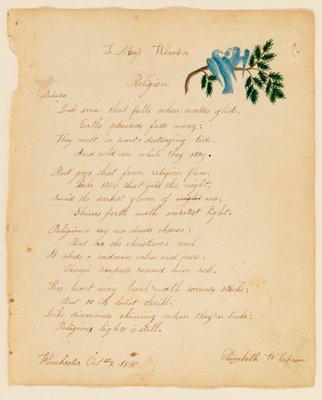 To Miss Wharton
Religion
Selected
Like snow that falls where waters glide,
Earth's pleasures fade away;
They melt in time's destroying tide,
And cold are while they stay.
But joys that from religion flow,
Like stars that gild the night,
Amid the darkest gloom of woe,
Shines forth with sweetest light.
Religion's ray no clouds obscure;
But the christian's soul
It sheds a radiance calm and pure.
Though tempests round him roll.
His heart may break 'neath sorrow's stroke;
But to its latest thrill.
Like diamonds shining when they're broke
Religion lights it still.
Winchester Oct 2, 18
Elizabeth W